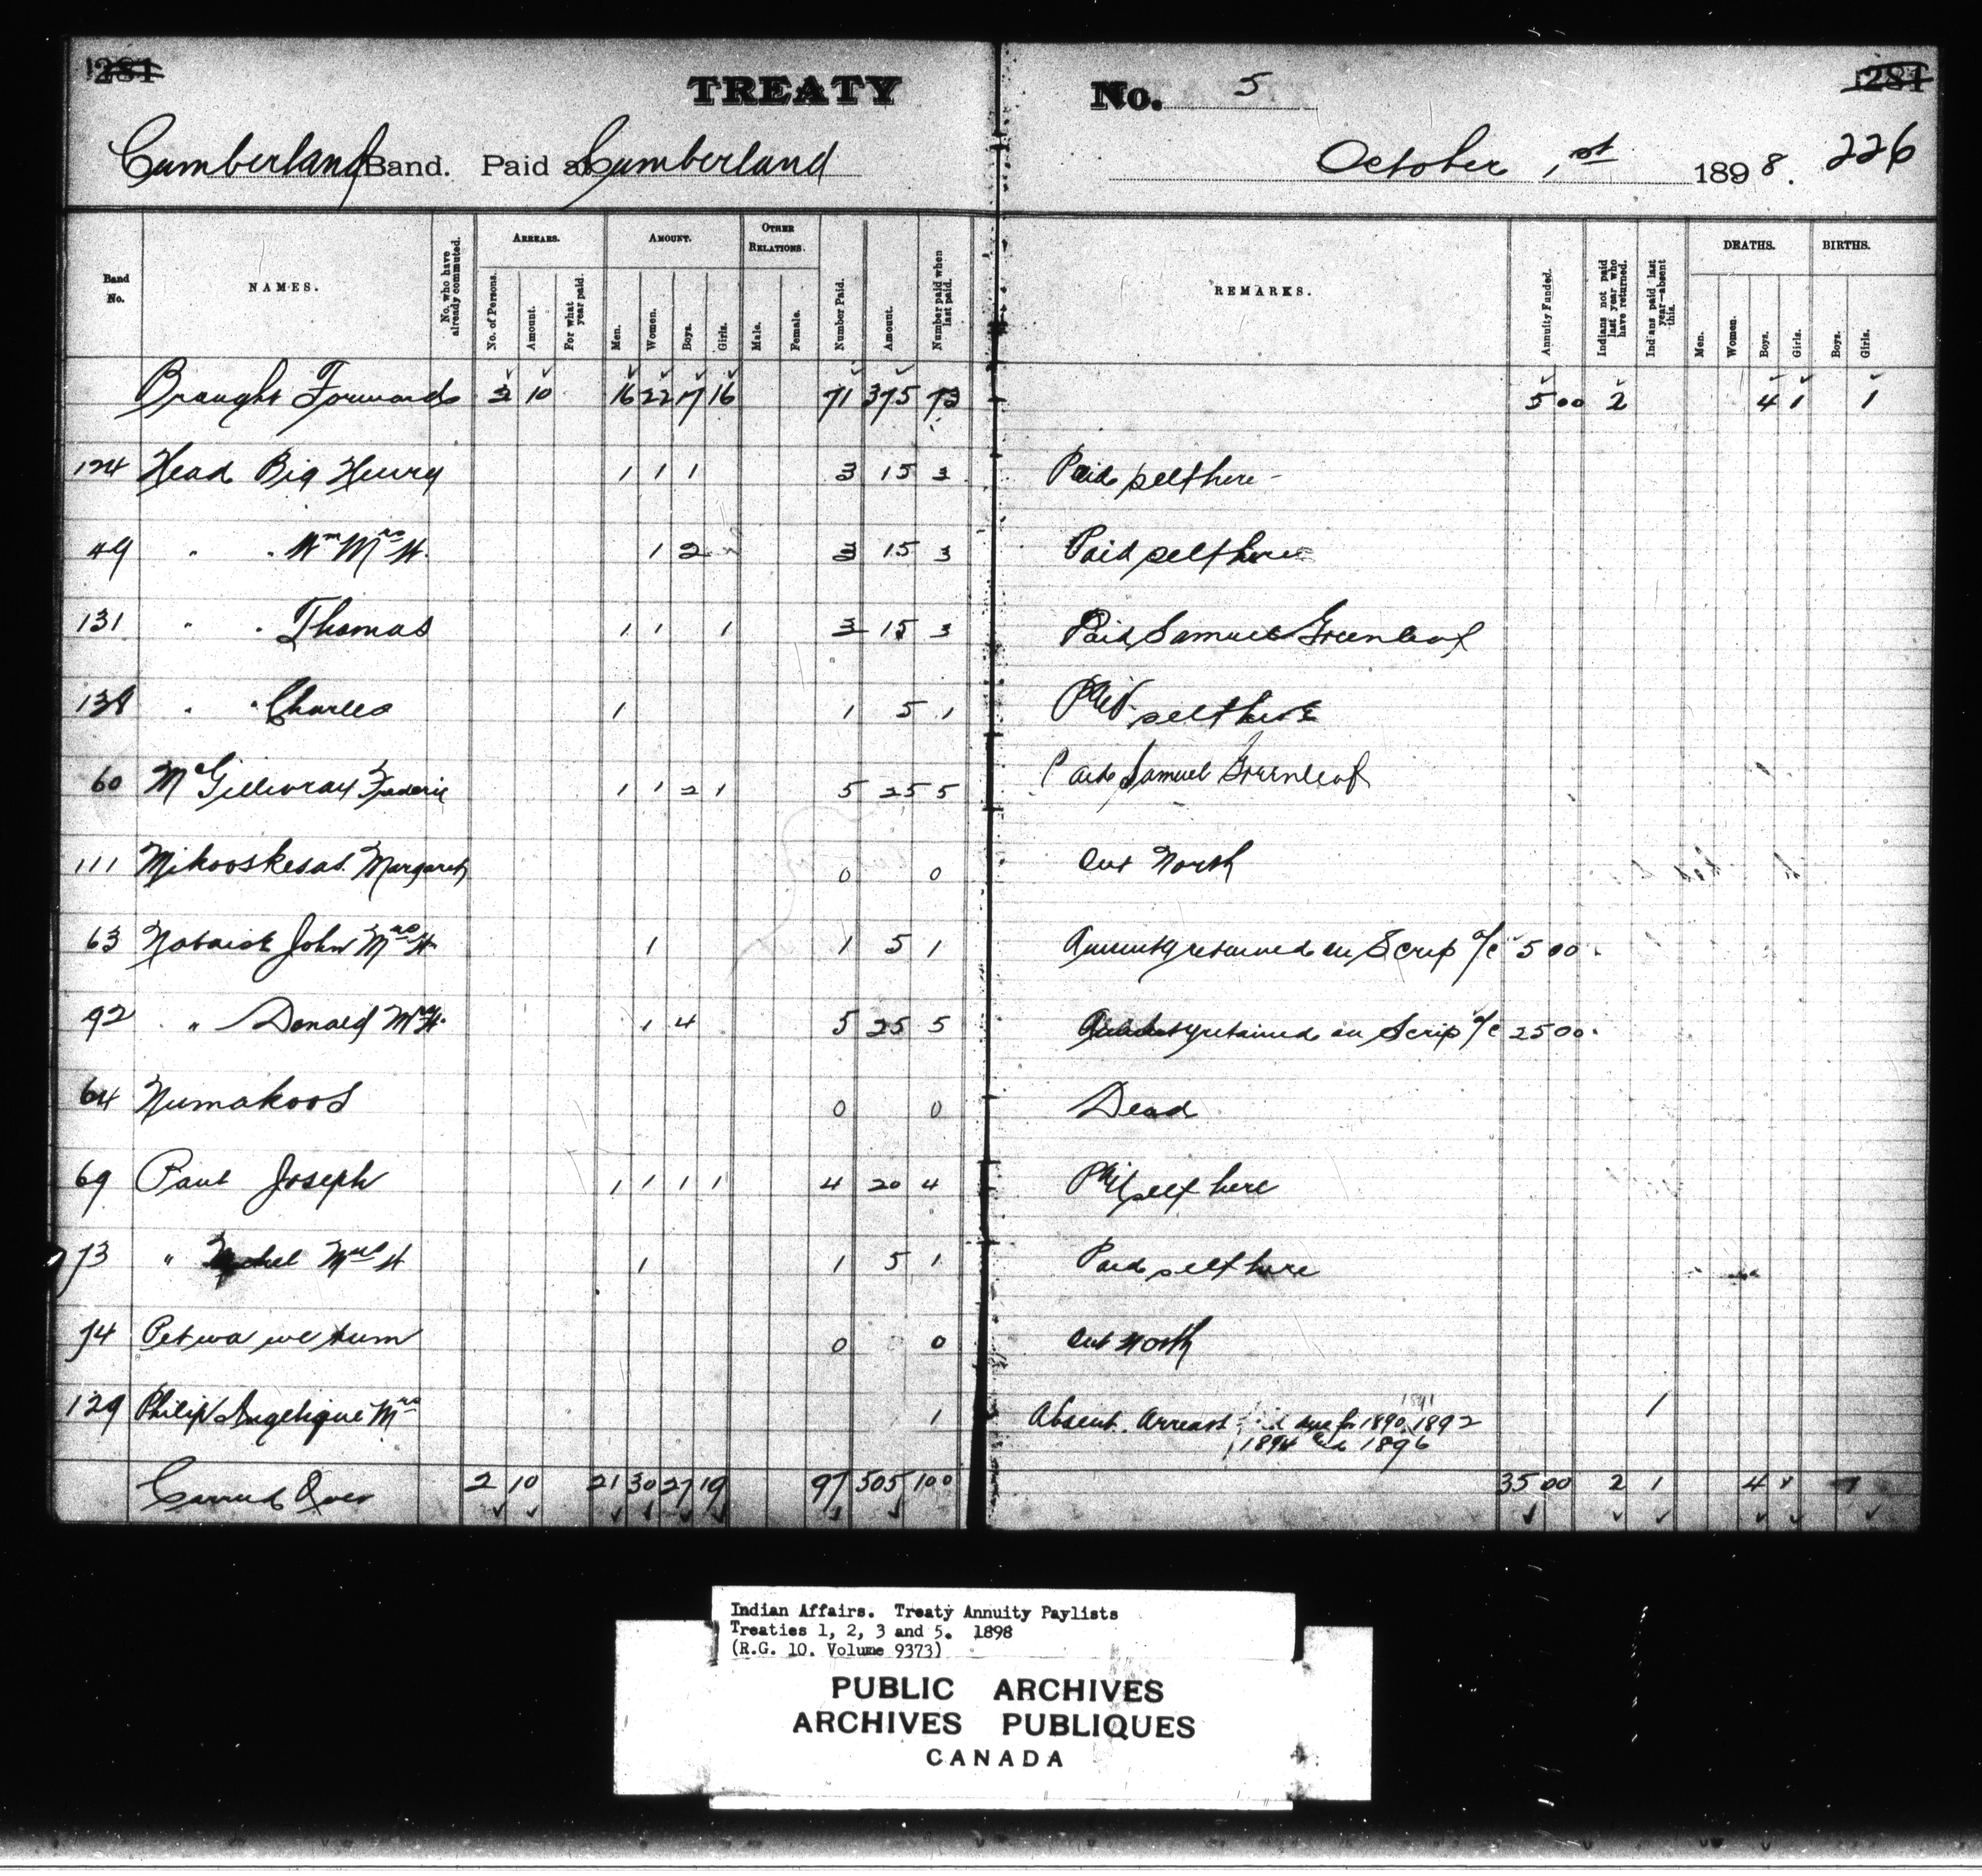 1281 TREATY No. 5 1281
Cumberland Band. Paid at Cumberland October 1st 1898. 226
Band No. NAMES. No. who have already commuted. ARREARS. No. of Persons. Amount. For what year paid. AMOUNT. Men. Women. Boys. Girls. OTHER RELATIONS. Male. Female. Number Paid. Amount. Number paid when last paid. REMARKS. Annuity Funded. Indians not paid last year who have returned. Indians paid last year—absent this. DEATHS. Men. Women. Boys. Girls. BIRTHS. Boys. Girls.
Brought Forward 2 10 16 22 17 16 71 375 73 5 00 2 4 1 1
124 Head Big Henry 1 1 1 3 15 3 Paid self here -
49 " " Wm Mrs W. 1 2 3 15 3 Paid self here
131 " " Thomas 1 1 1 3 15 3 Paid Samuel Greenleaf
138 " " Charles 1 1 5 1 Paid self here
60 McGillivray Frederic 1 1 2 1 5 25 5 Paid Samuel Greenleaf
111 Mikooskesas Margaret 0 0 Out North
63 Nabaisk John Mrs W. 1 1 5 1 Annuity retained on Scrip a/c 5 00.
92 " Donald Mrs W. 1 4 5 25 5 Annuity retained on Scrip a/c 25 00.
64 Numakoos 0 0 Dead
69 Paul Joseph 1 1 1 1 4 20 4 Paid self here
73 " Michel Mrs W 1 1 5 1 Paid self here
74 Petwawetum 0 0 Out North
129 Philip Angelique Mrs 1 Absent. Arrears due for 1890, 1891 1892 1
1894 and 1896
Carried Over 2 10 21 30 27 19 97 505 100 35 00 2 1 4 1 1
Indian Affairs. Treaty Annuity Paylists
Treaties 1, 2, 3 and 5. 1898
(R.G. 10. Volume 9373)
PUBLIC ARCHIVES
ARCHIVES PUBLIQUES
CANADA